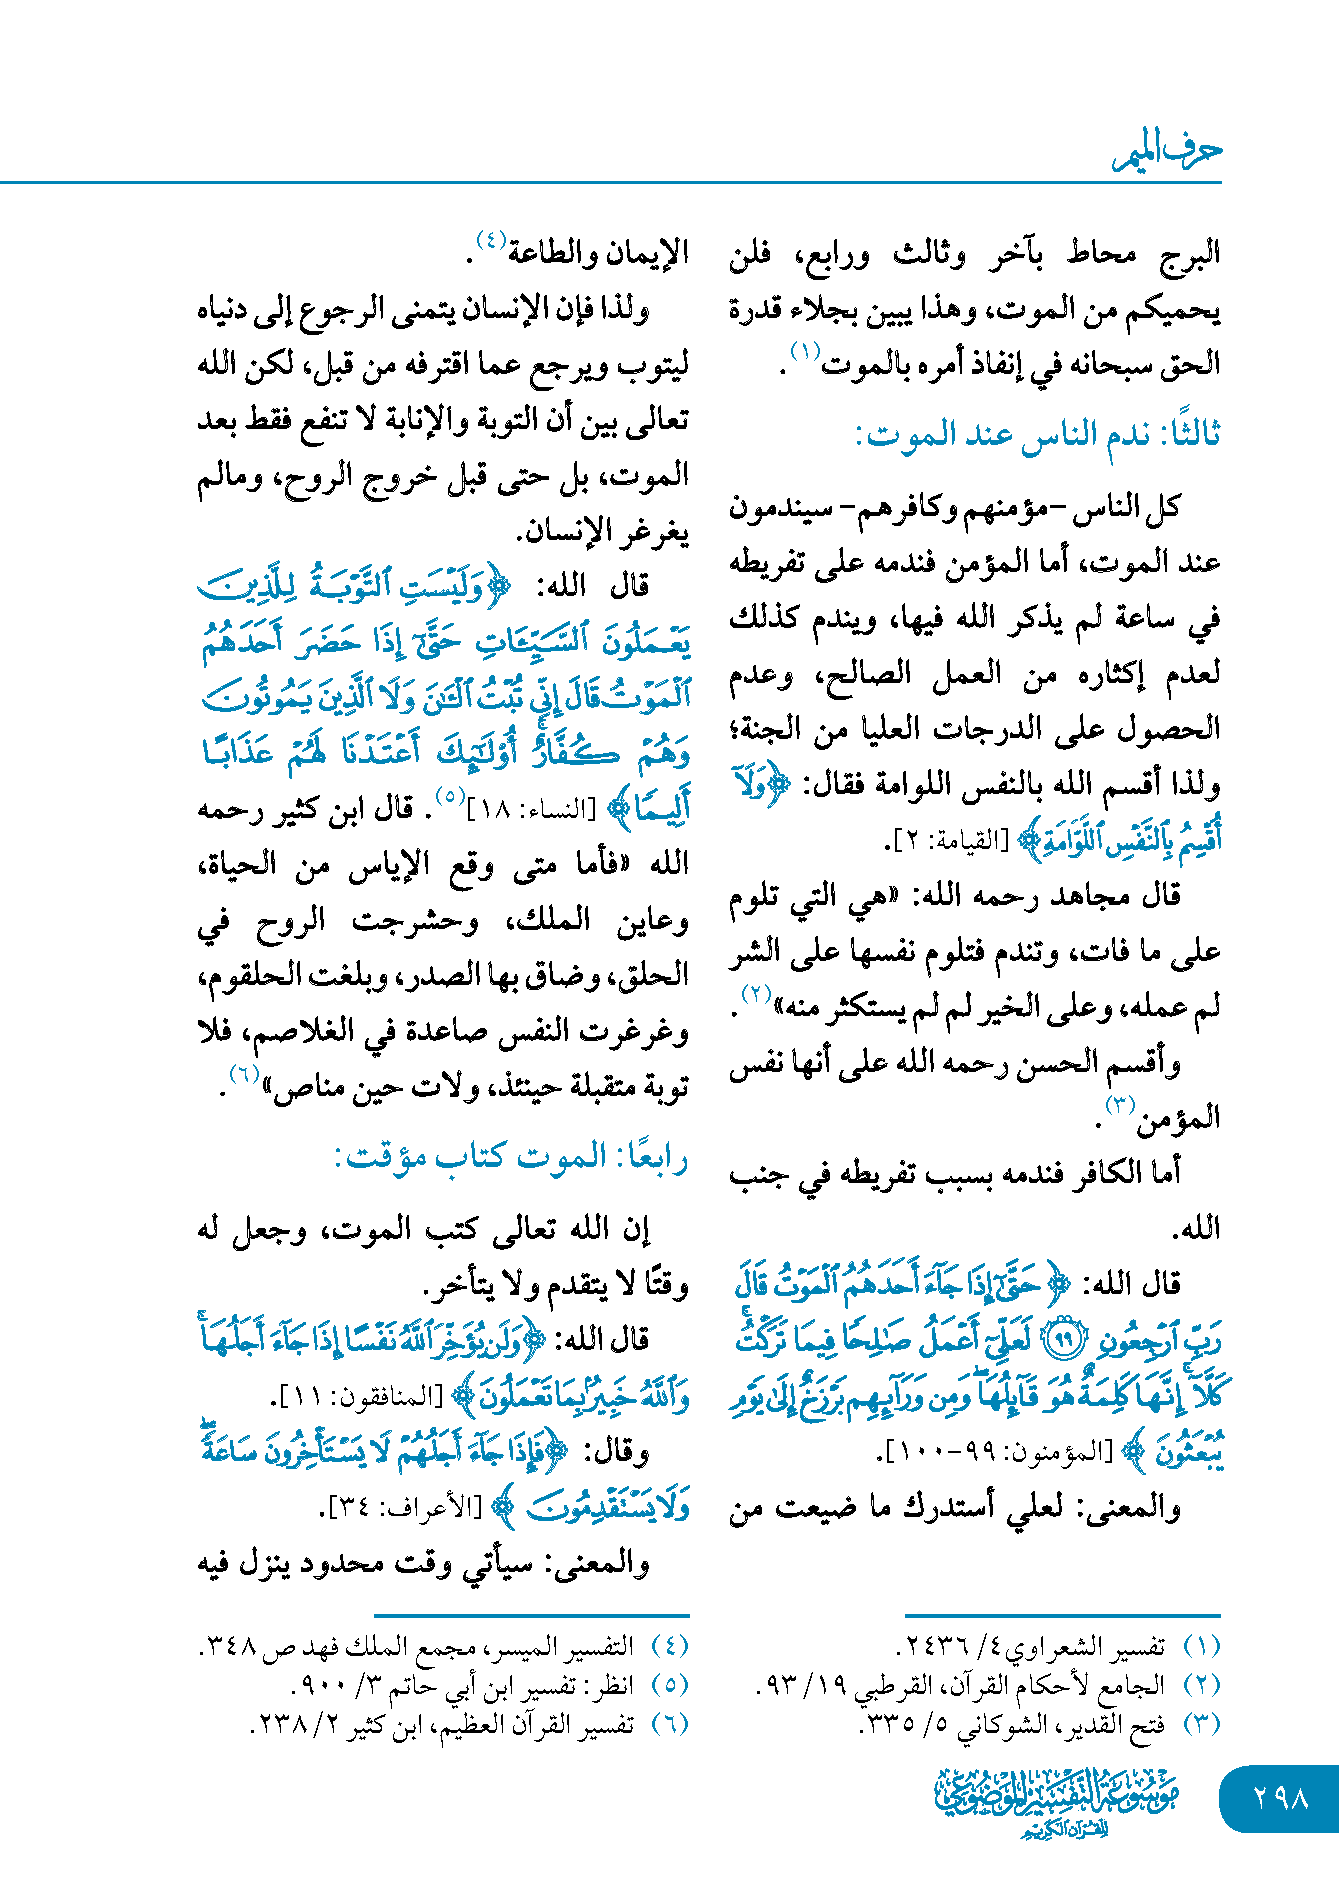 حرف الميم
البرج محاط بآخر وثالث ورابع، فلن
يحميكم من الموت، وهذا يبين بجلاء قدرة
الحق سبحانه في إنفاذ أمره بالموت(١).
ثالثًا: ندم الناس عند الموت:
كل الناس -مؤمنهم وكافرهم- سيندمون
عند الموت، أما المؤمن فندمه على تفريطه
في ساعة لم يذكر الله فيها، ويندم كذلك
لعدم إكثاره من العمل الصالح، وعدم
الحصول على الدرجات العليا من الجنة؛
ولذا أقسم الله بالنفس اللوامة فقال: ﴿وَلَآ
أُقْسِمُ بِٱلنَّفْسِ ٱللَّوَّامَةِ﴾ [القيامة: ٢].
قال مجاهد رحمه الله: «هي التي تلوم
على ما فات، وتندم فتلوم نفسها على الشر
لم عمله، وعلى الخير لم لم يستكثر منه»(٢).
وأقسم الحسن رحمه الله على أنها نفس
المؤمن(٣).
أما الكافر فندمه بسبب تفريطه في جنب
الله.
قال الله: ﴿حَتَّىٰٓ إِذَا جَآءَ أَحَدَهُمُ ٱلْمَوْتُ قَالَ
رَبِّ ٱرْجِعُونِ ٩٩ لَعَلِّىٓ أَعْمَلُ صَٰلِحًا فِيمَا تَرَكْتُ ۚ
كَلَّآ ۚ إِنَّهَا كَلِمَةٌ هُوَ قَآئِلُهَا ۖ وَمِن وَرَآئِهِم بَرْزَخٌ إِلَىٰ يَوْمِ
يُبْعَثُونَ﴾ [المؤمنون: ٩٩-١٠٠].
والمعنى: لعلي أستدرك ما ضيعت من
الإيمان والطاعة(٤).
ولذا فإن الإنسان يتمنى الرجوع إلى دنياه
ليتوب ويرجع عما اقترفه من قبل، لكن الله
تعالى بين أن التوبة والإنابة لا تنفع فقط بعد
الموت، بل حتى قبل خروج الروح، ومالم
يغرغر الإنسان.
قال الله: ﴿وَلَيْسَتِ ٱلتَّوْبَةُ لِلَّذِينَ
يَعْمَلُونَ ٱلسَّيِّـَٔاتِ حَتَّىٰٓ إِذَا حَضَرَ أَحَدَهُمُ
ٱلْمَوْتُ قَالَ إِنِّى تُبْتُ ٱلْـَٰٔنَ وَلَا ٱلَّذِينَ يَمُوتُونَ
وَهُمْ كُفَّارٌ ۚ أُو۟لَٰٓئِكَ أَعْتَدْنَا لَهُمْ عَذَابًا
أَلِيمًا﴾ [النساء: ١٨](٥). قال ابن كثير رحمه
الله «فأما متى وقع الإياس من الحياة،
وعاين الملك، وحشرجت الروح في
الحلق، وضاق بها الصدر، وبلغت الحلقوم،
وغرغرت النفس صاعدة في الغلاصم، فلا
توبة متقبلة حينئذ، ولات حين مناص»(٦).
رابعًا: الموت كتاب مؤقت:
إن الله تعالى كتب الموت، وجعل له
وقتًا لا يتقدم ولا يتأخر.
قال الله: ﴿وَلَن يُؤَخِّرَ ٱللَّهُ نَفْسًا إِذَا جَآءَ أَجَلُهَا ۚ
وَٱللَّهُ خَبِيرٌۢ بِمَا تَعْمَلُونَ﴾ [المنافقون: ١١].
وقال: ﴿فَإِذَا جَآءَ أَجَلُهُمْ لَا يَسْتَأْخِرُونَ سَاعَةً ۖ
وَلَا يَسْتَقْدِمُونَ﴾ [الأعراف: ٣٤].
والمعنى: سيأتي وقت محدود ينزل فيه
(١) تفسير الشعراوي٤/ ٢٤٣٦.
(٢) الجامع لأحكام القرآن، القرطبي ١٩/ ٩٣.
(٣) فتح القدير، الشوكاني ٥/ ٣٣٥.
(٤) التفسير الميسر، مجمع الملك فهد ص ٣٤٨.
(٥) انظر: تفسير ابن أبي حاتم ٣/ ٩٠٠.
(٦) تفسير القرآن العظيم، ابن كثير ٢/ ٢٣٨.
موسوعة التفسير الموضوعي
للقرآن الكريم
٢٩٨